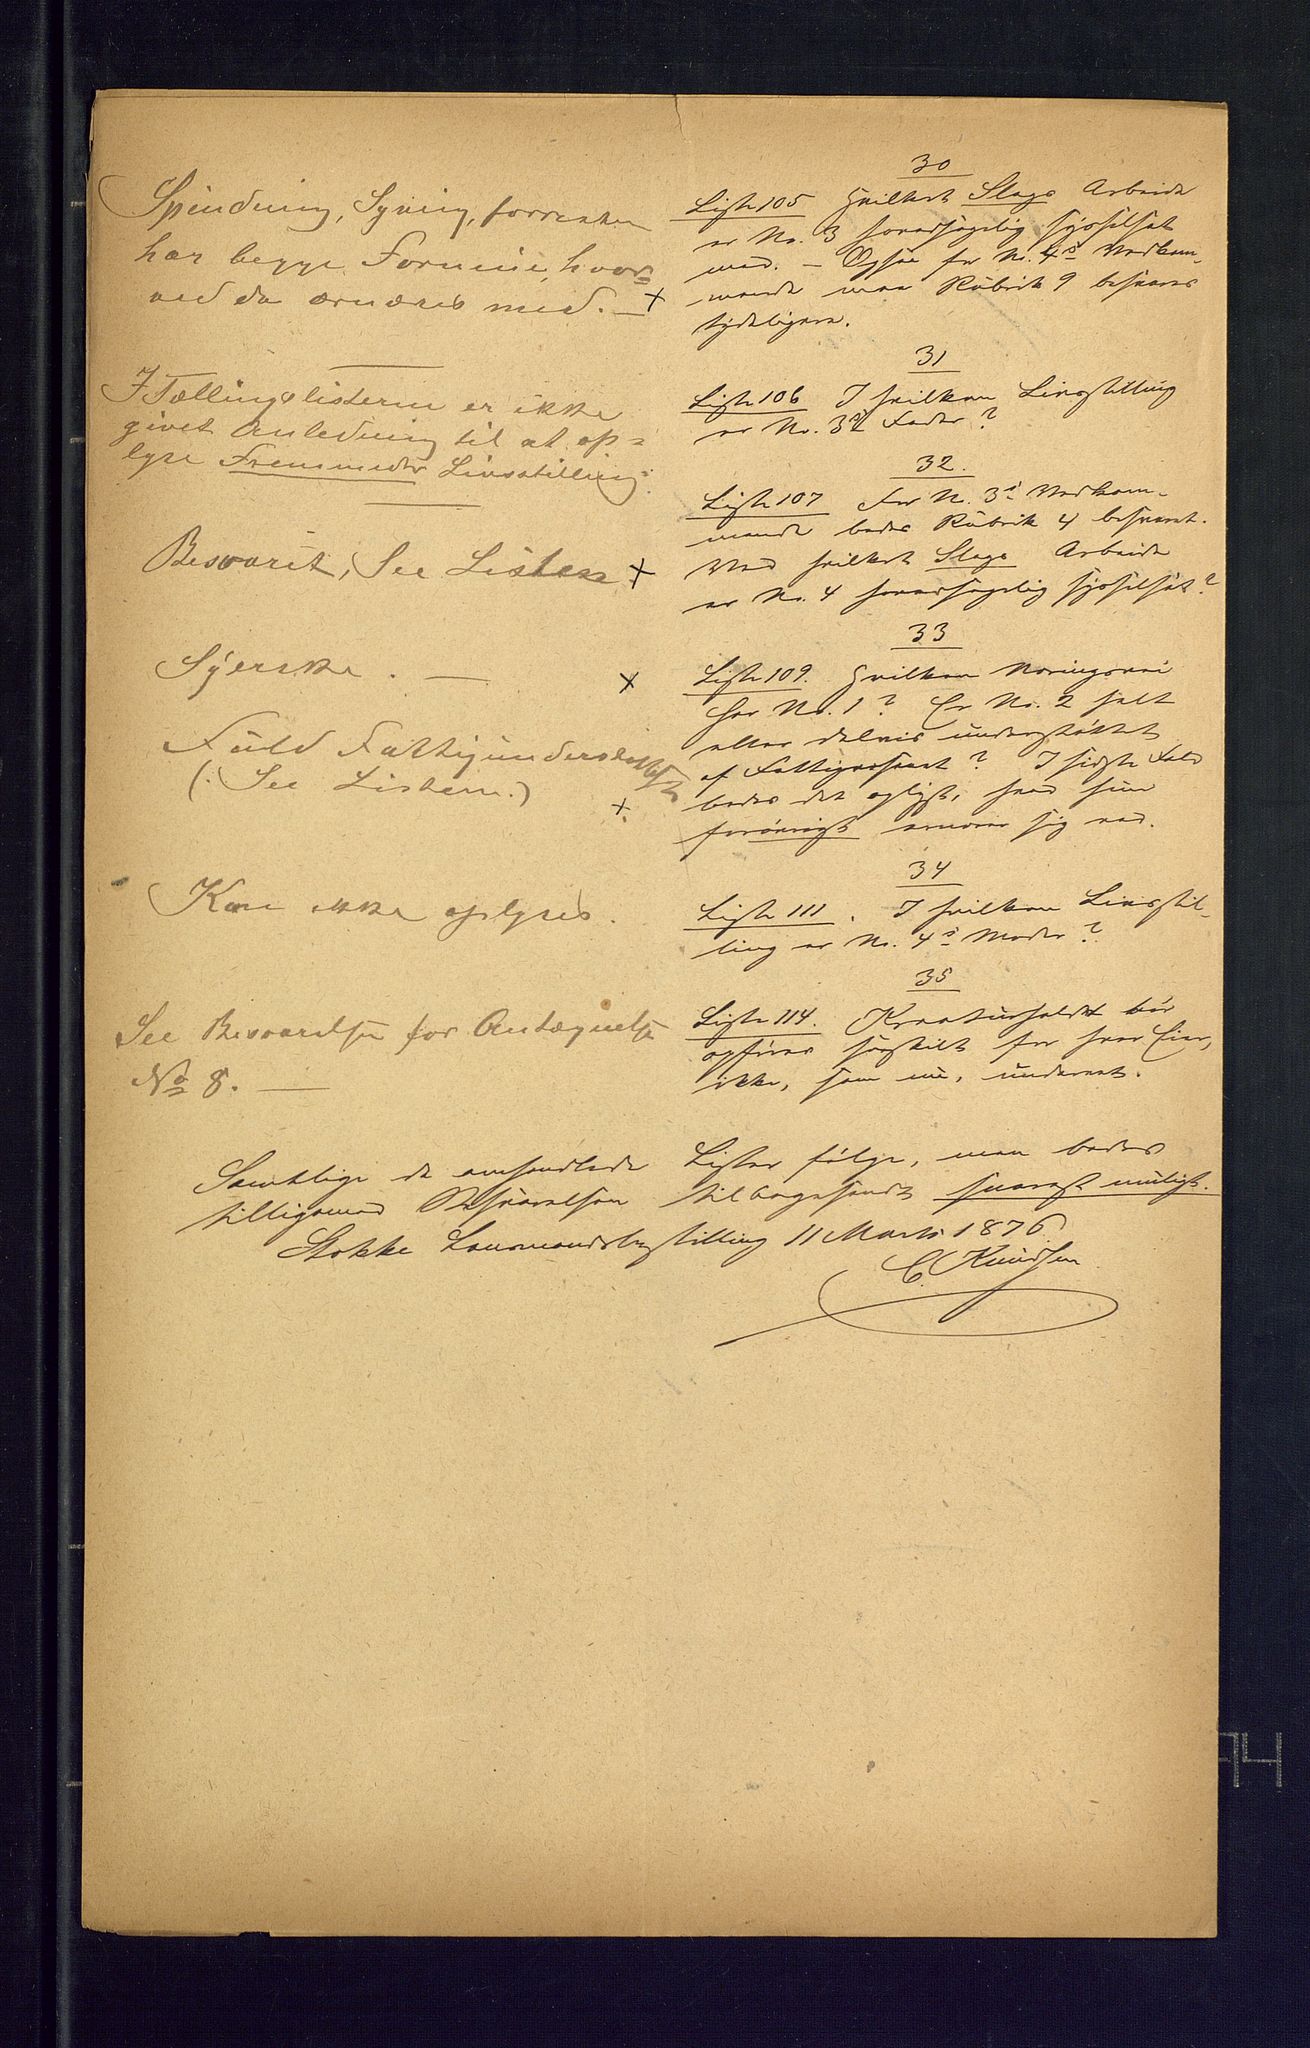 30
Liste 105 Hvilket Slags Arbeide
er No. 3 hovedsagelig sysselsat
med. — Ogsaa for No. 4s Vedkom-
mende maa Rubrik 9 besvares
tydeligere.
Spinding, Syning, forresten
har begge Formue, hvor=
ved de ernæres med. — x
31
Liste 106 I hvilken Livsstilling
er No. 3s Fader?
I Tællingslisterne er ikke
givet Anledning til at op=
lyse Fremmedes Livsstilling.
32.
Liste 107 For N. 3s Vedkom-
mende bedes Rubrik 4 besvaret.
Med hvilket Slags Arbeide
er No. 4 hovedsagelig sysselsat?
Besvaret, See Listen x
33
Liste 109. Hvilken Næringsvei
har No. 1? Er No. 2 helt
eller delvis understøttet
af Fattigvæsenet? I sidste Fald
bedes det oplyst, hvad hun
forøvrigt ernærer sig ved.
Syerske. — x
Fuld Fattigunderstøttelse
(: See Listen:) x
34
Liste 111. I hvilken Livsstil-
ling er No. 4s Moder?
Kan ikke oplyses.
35
Liste 114. Kreaturholdet bør
opføres særskilt for hver Eier,
ikke, som nu, underet.
See Besvarelsen for Antegnelse
No 8. —
Samtlige de omhandlede Lister følge, men bedes
tilligemed Besvarelsen tilbagesendt snarest muligt.
Stokke Lensmandsbestilling 11 Marts 1876
C Knudsen